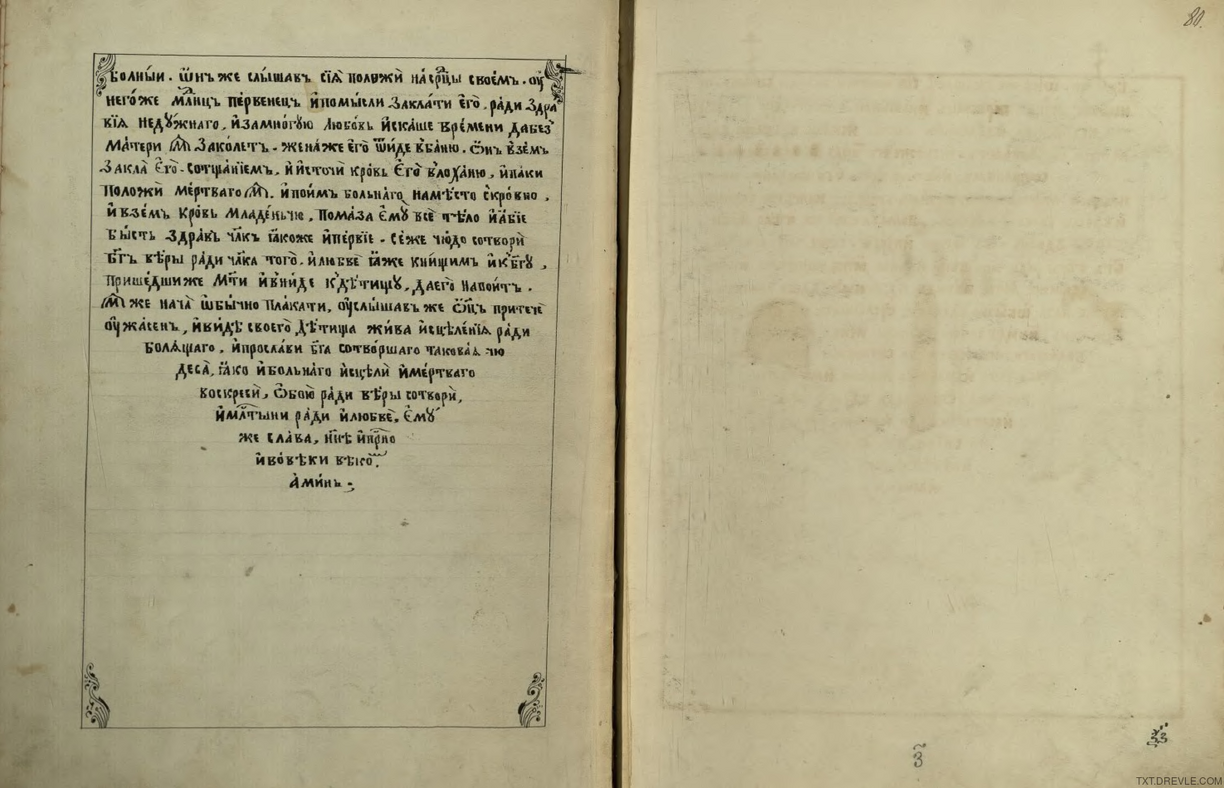 болныи. ѿнъ же слышавъ сїѧ положи на срⷣцы своемъ. оу
негоже млⷣнцъ первенецъ и помысли заклати его. ради здра
вїѧ недужнаго, и за многую любовь искаше времени да без
матери заколетъ. жена же его ѿиде в баню. ѡнъ вземъ
закла его. со тщанїемъ, и источи кровь его в лоханю, и паки
положи мертваго. и поимъ больнаго на мѣсто скровно,
и вземъ кровь младенчю, помаза ему все тѣло и абїе
бысть здравъ чл҃къ ꙗкоже и первїе. се же чюдо сотвори
бг҃ъ вѣры ради чл҃ка того. и любве ꙗже к нищимъ и къ бг҃у,
пришедши же мт҃и и вниде къ дѣтищу, да его напоитъ.
же нача ѡбычно плакати, оуслышавъ же ѡц҃ъ притече
оужасенъ, и видѣ своего дѣтища жива исцѣленїѧ ради
болѧщаго, и прослави бг҃а сотворшаго таковаѧ чю
деса, ꙗко и больнаго исцѣли и мертваго
воскреси, ѡбою ради вѣры сотвори,
и млⷭтыни ради и любве, ему
же слава, нн҃ѣ и прⷭно
и во вѣки вѣкоⷨ.
аминь
80.
з҃
TXT.DREVLE.COM